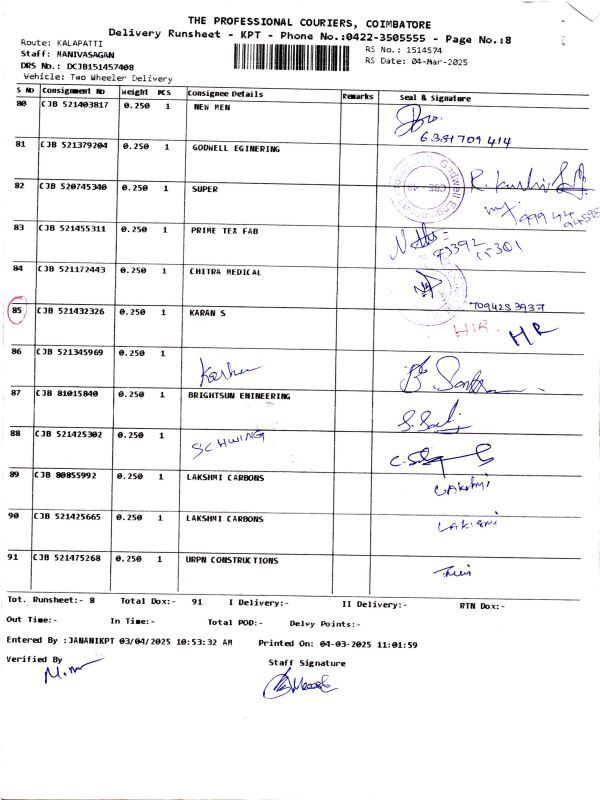 THE PROFESSIONAL COURIERS, COIMBATORE
Delivery Runsheet - KPT - Phone No.:0422-3505555 - Page No.:8
Route: KALAPATTI
Staff: MANIVASAGAN
DRS No.: DCJB151457408
Vehicle: Two Wheeler Delivery
RS No.: 1514574
RS Date: 04-Mar-2025
S No Consignment No Weight PCS Consignee Details Remarks Seal & Signature
80 CJB 521403817 0.250 1 NEW MEN
6381709414
81 CJB 521379204 0.250 1 GODWELL EGINERING
82 CJB 520745340 0.250 1 SUPER
83 CJB 521455311 0.250 1 PRIME TEX FAB
73392 15301
84 CJB 521172443 0.250 1 CHITRA MEDICAL
7094283937
85 CJB 521432326 0.250 1 KARAN S HIR HR
86 CJB 521345969 0.250 1
87 CJB 81015840 0.250 1 BRIGHTSUN ENINEERING
88 CJB 521425302 0.250 1 SCHWING
89 CJB 80855992 0.250 1 LAKSHMI CARBONS Lakshmi
90 CJB 521425665 0.250 1 LAKSHMI CARBONS
91 CJB 521475268 0.250 1 URPN CONSTRUCTIONS
Tot. Runsheet:- 8 Total Dox:- 91 I Delivery:- II Delivery:- RTN Dox:-
Out Time:- In Time:- Total POD:- Delvy Points:-
Entered By :JANANIKPT 03/04/2025 10:53:32 AM Printed On: 04-03-2025 11:01:59
Verified By Staff Signature